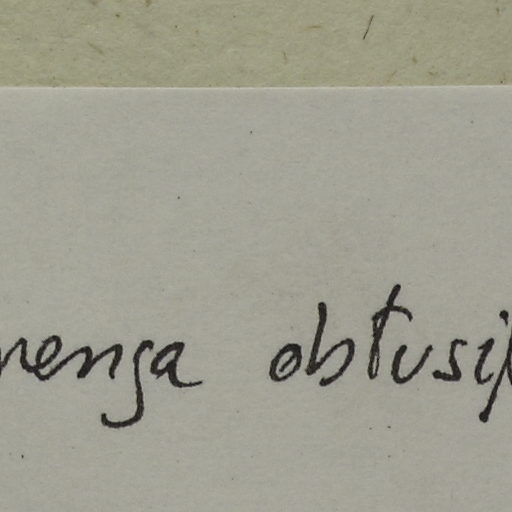 renga obtusif